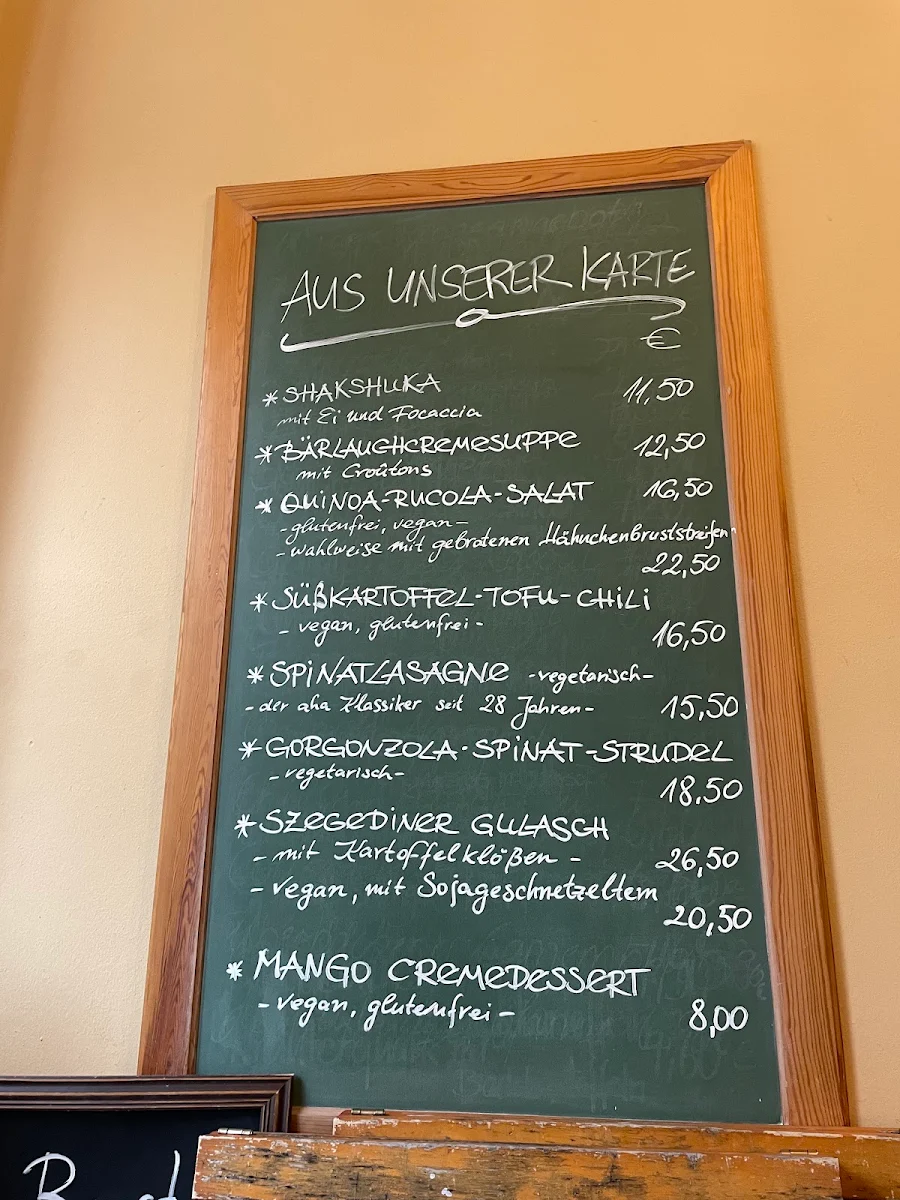 AUS UNSERER KARTE
€
* SHAKSHUKA 11,50
mit Ei und Focaccia
* BÄRLAUCHCREMESUPPE 12,50
mit Croûtons
* QUINOA-RUCOLA-SALAT 16,50
- glutenfrei, vegan -
- wahlweise mit gebratenen Hähnchenbruststreifen
22,50
* SÜßKARTOFFEL-TOFU-CHILI
- vegan, glutenfrei - 16,50
* SPINATLASAGNE - vegetarisch -
- der aha Klassiker seit 28 Jahren - 15,50
* GORGONZOLA-SPINAT-STRUDEL
- vegetarisch - 18,50
* SZEGEDINER GULASCH
- mit Kartoffelklößen - 26,50
- vegan, mit Sojageschnetzeltem
20,50
* MANGO CREMEDESSERT
- vegan, glutenfrei - 8,00